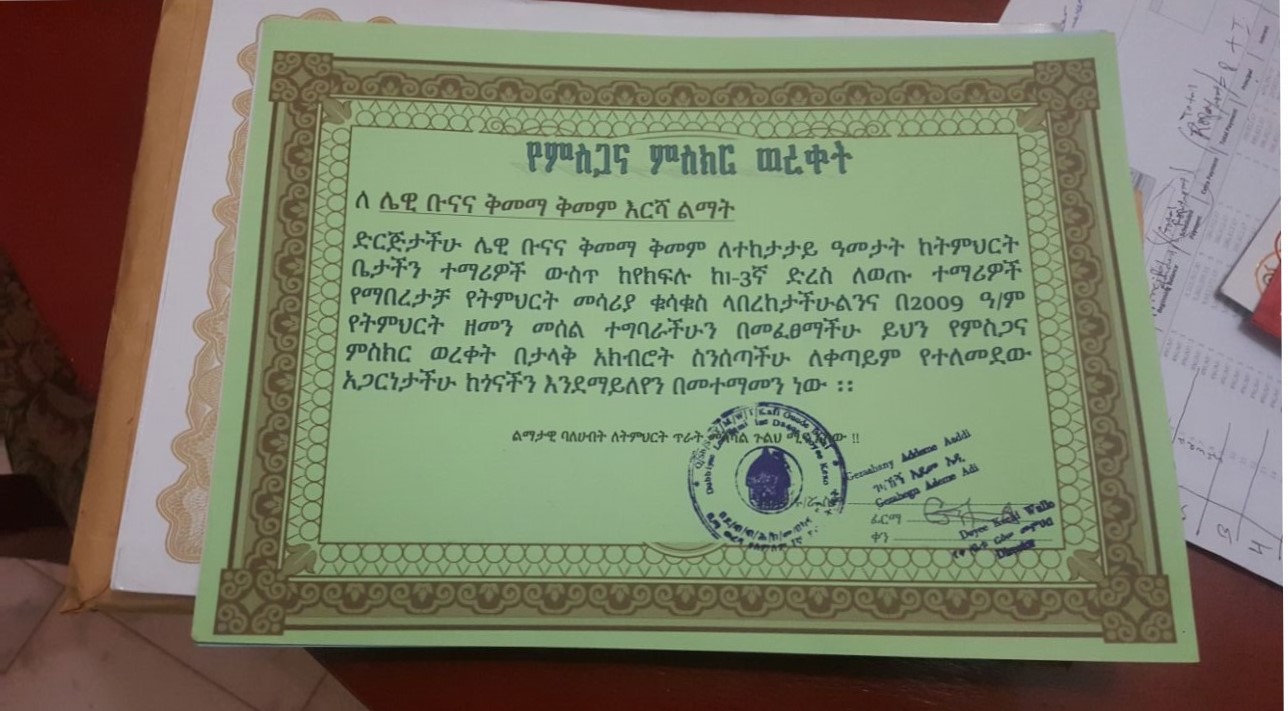 የምስጋና ምስክር ወረቀት
ለ ሌዊ ቡናና ቅመማ ቅመም እርሻ ልማት
ድርጅታችሁ ሌዊ ቡናና ቅመማ ቅመም ለተከታታይ ዓመታት ከትምህርት
ቤታችን ተማሪዎች ውስጥ ከየክፍሉ ከ1-3ኛ ድረስ ለወጡ ተማሪዎች
የማበረታቻ የትምህርት መሳሪያ ቁሳቁስ ላበረከታችሁልንና በ2009 ዓ/ም
የትምህርት ዘመን መሰል ተግባራችሁን በመፈፀማችሁ ይህን የምስጋና
ምስክር ወረቀት በታላቅ አክብሮት ስንሰጣችሁ ለቀጣይም የተለመደው
አጋርነታችሁ ከጎናችን እንደማይለየን በመተማመን ነው ፡፡
ልማታዊ ባለሀብት ለትምህርት ጥራት ጉልህ !!
Addeme Aaddi
Ademe Adi
ፊርማ
ቀን